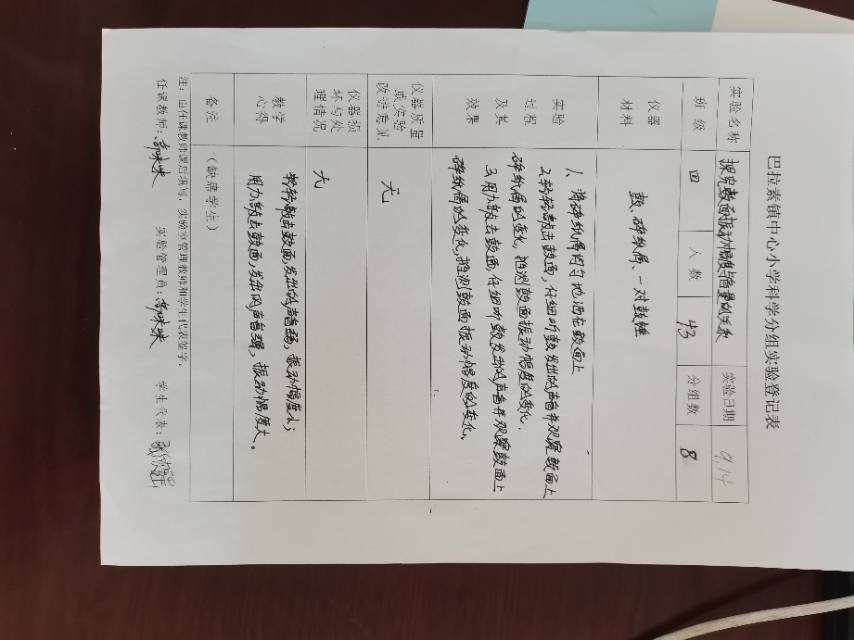 巴拉素镇中心小学科学分组实验登记表
实验名称 探究鼓面振动幅度与音量的关系 实验日期 9/4
班级 四 人数 43 分组数 8
仪器材料 鼓、碎纸屑、一对鼓锤
实验过程及其效果
1、将碎纸屑均匀地洒在鼓面上
2、轻轻敲击鼓面,仔细听鼓发出的声音并观察鼓面上
碎纸屑的变化,推测鼓面振动幅度的变化.
3、用力敲击鼓面,仔细听鼓发出的声音并观察鼓面上
碎纸屑的变化,推测鼓面振动幅度的变化。
仪器质量或实验改进意见 无
仪器损坏与处理情况 无
教学心得
轻轻敲击鼓面发出的声音弱,振动幅度小;
用力敲击鼓面,发出的声音强,振动幅度大。
备注 (缺席学生)
注:由任课教师课后填写,实验室管理教师和学生代表签字。
任课教师: 实验管理员: 学生代表: